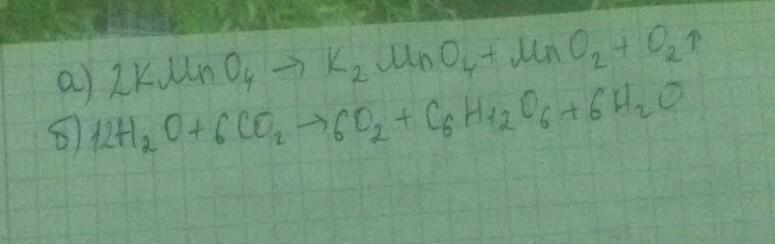 а) 2KMnO₄ → K₂MnO₄ + MnO₂ + O₂↑
б) 12H₂O + 6CO₂ → 6O₂ + C₆H₁₂O₆ + 6H₂O